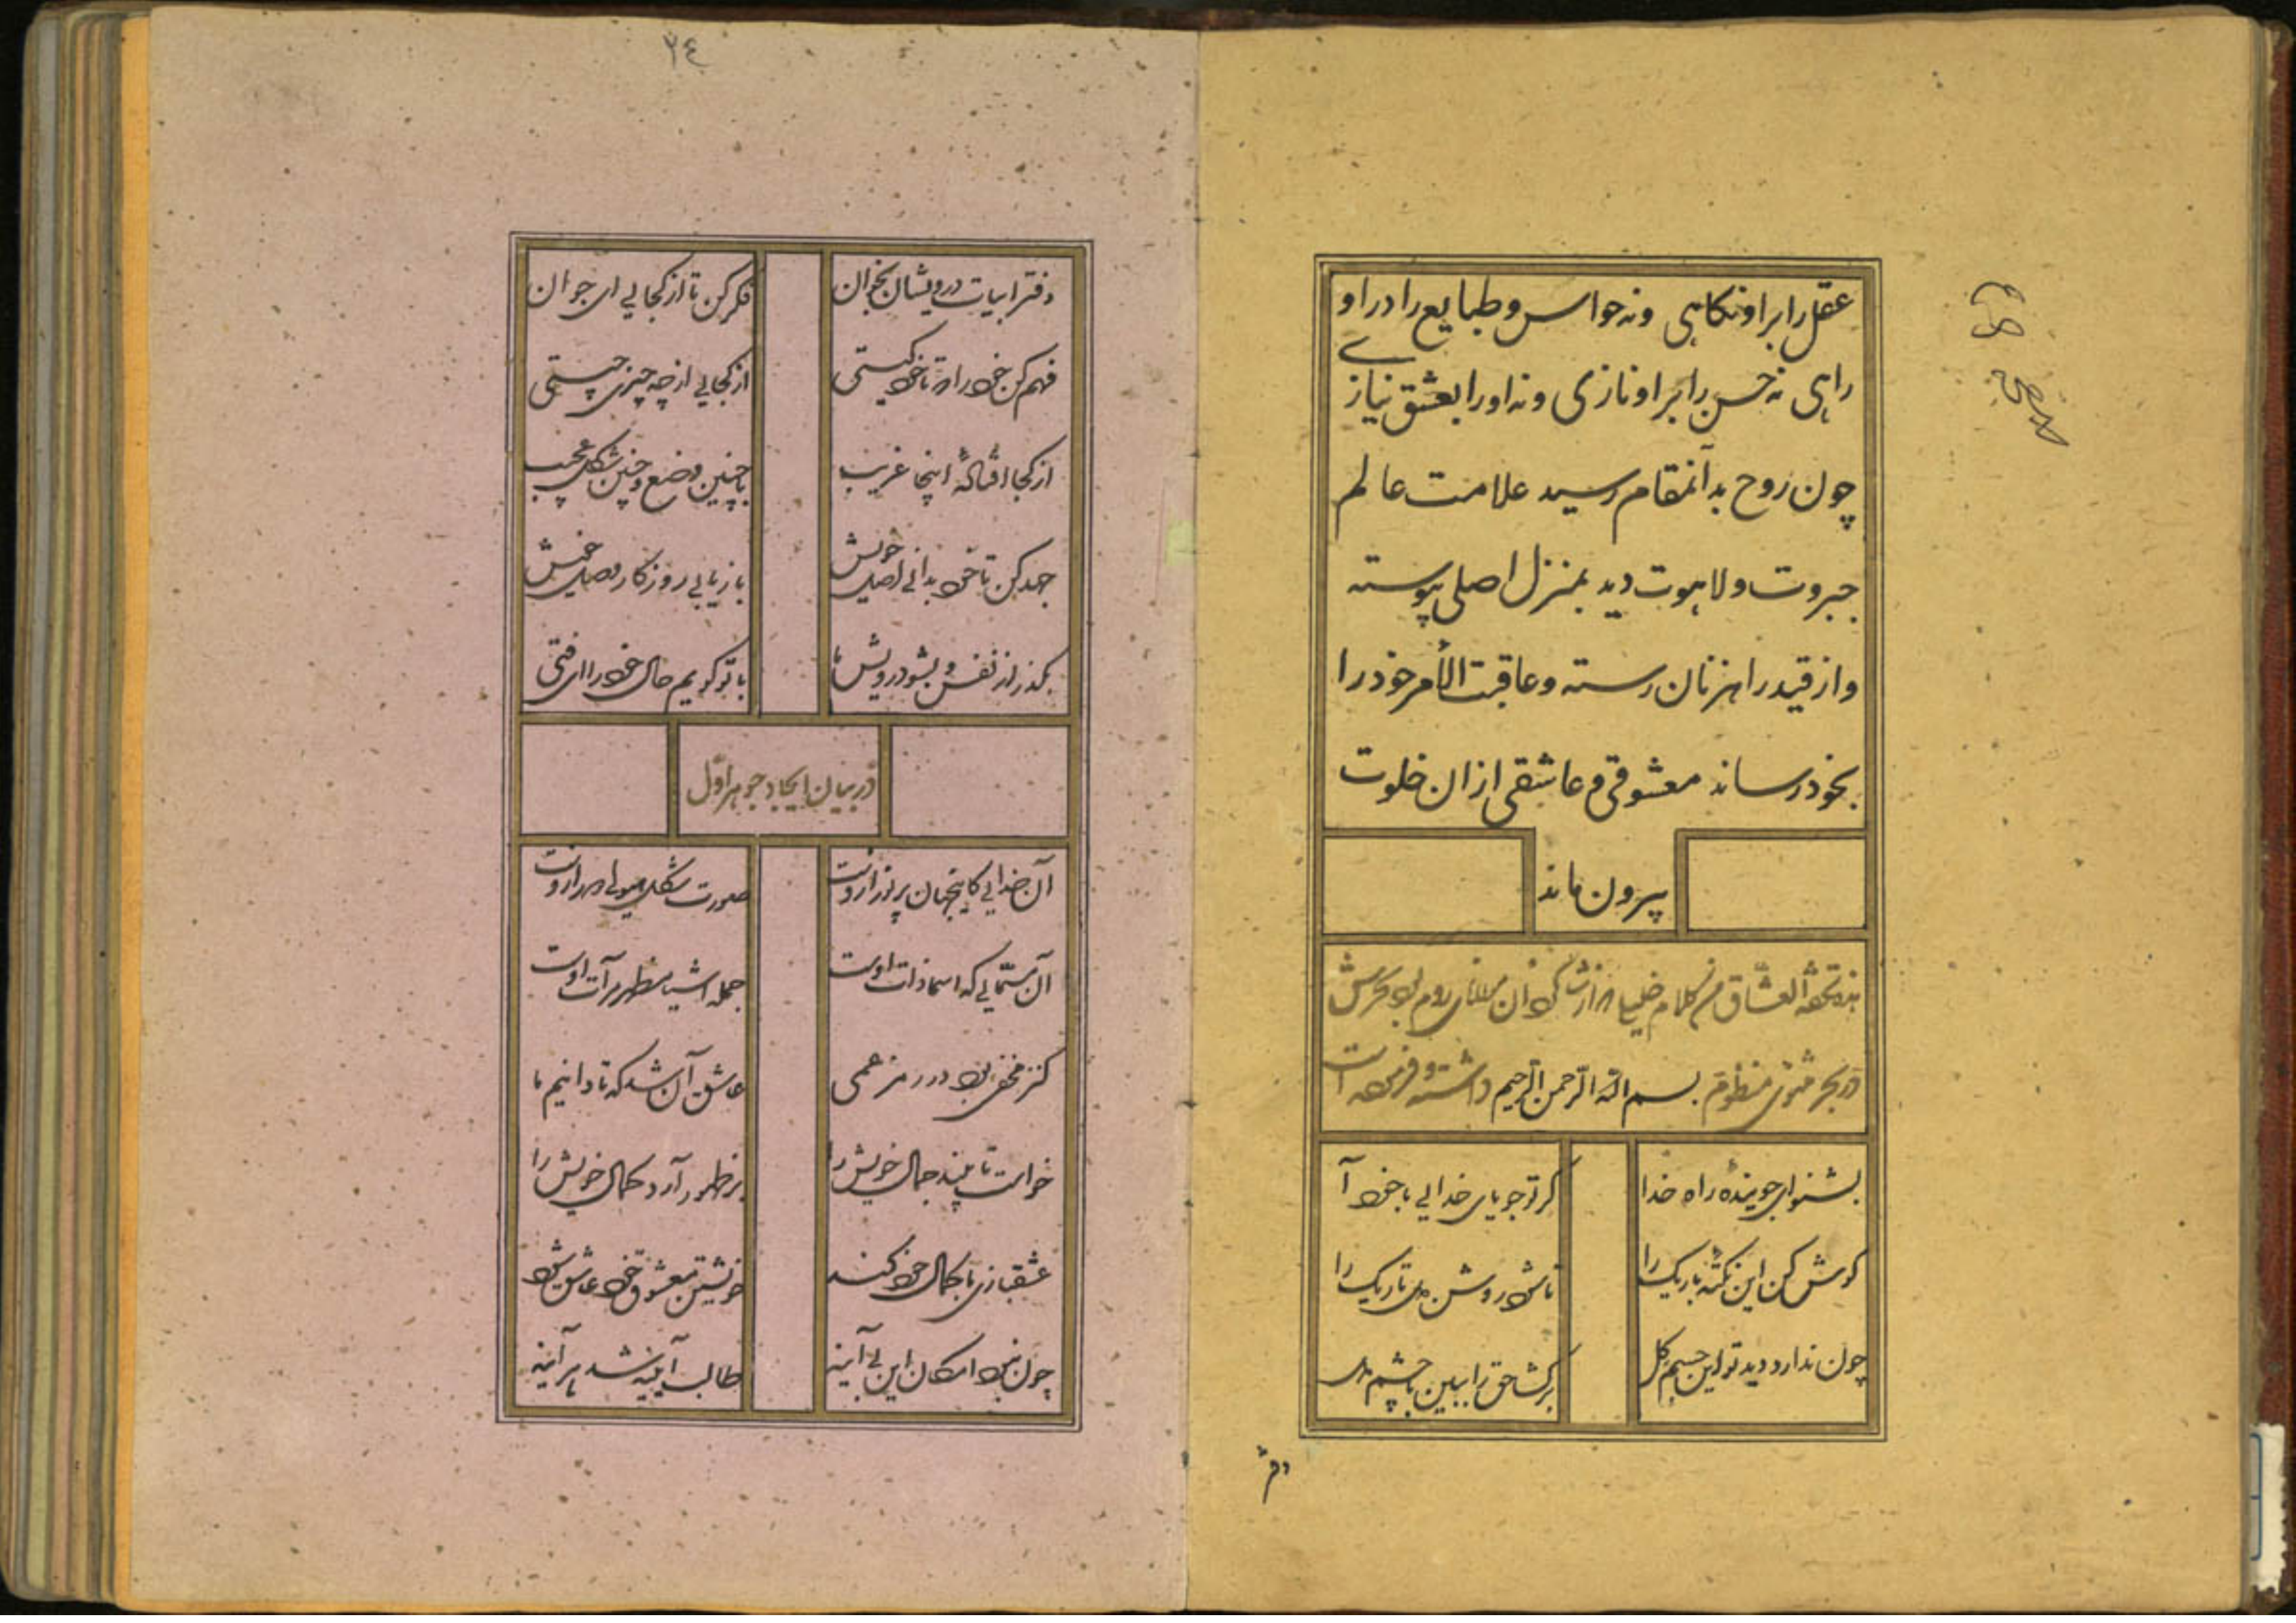 عقل را بر او نکاهی ونه حواس و طبایع را در او
راهی نه حسن را بر او نازی ونه او را بعشق نیازے
چون روح بدآنمقام رسید علامت عالم
جبروت ولاهوت دید بمنزل اصلی پیوسته
واز قید راهزنان رسته وعاقبت الأمر خود را
بخود رساند معشوقی و عاشقی ازان خلوت
پیرون ماند
هذه تحفة العشاق من کلام
در بحر مثنوی منظوم بسم الله الرحمن الرحیم داشته و فرموده است
بشنو ای جوینده راه خدا کر تو جویای خدایی باخود آ
کوش کن این نکتهٔ باریک را تا شود روشن دل تاریک را
چون ندارد دید تو این جسم کل برکشا حق را ببین با چشم دل
دفتر
٢٤
دفتر ابیات درویشان بخوان فکر کن تا از کجایی ای جوان
فهم کن خود را که تا خود کیستی از کجایی از چه چیزی چیستی
از کجا افتادهٔ اینجا غریب باچنین وضع و چنین شکل عجیب
جهد کن تا خود بدانی اصل خویش بازیابی روزکار وصل خویش
بکذر از نفس و بشو درویش ما با تو کویم حال خود را ای فتی
در بیان ایجاد جوهر اول
آن خدایی کاینجهان پر نور ازوست صورت شکل هیولی ازوست
آن مسمّایی که اسما ذات اوست جمله اشیا مظهر مرآت اوست
کنز مخفی بود در رمز عمی عاشق آن شد که تا دانیم ما
خواست تا بیند جمال خویش را در ظهور آرد کمال خویش را
عشقبازی با کمال خود کند خویشتن معشوق خود عاشق شود
چون نبود امکان این بی آینه طالب آیینه شد هر آینه